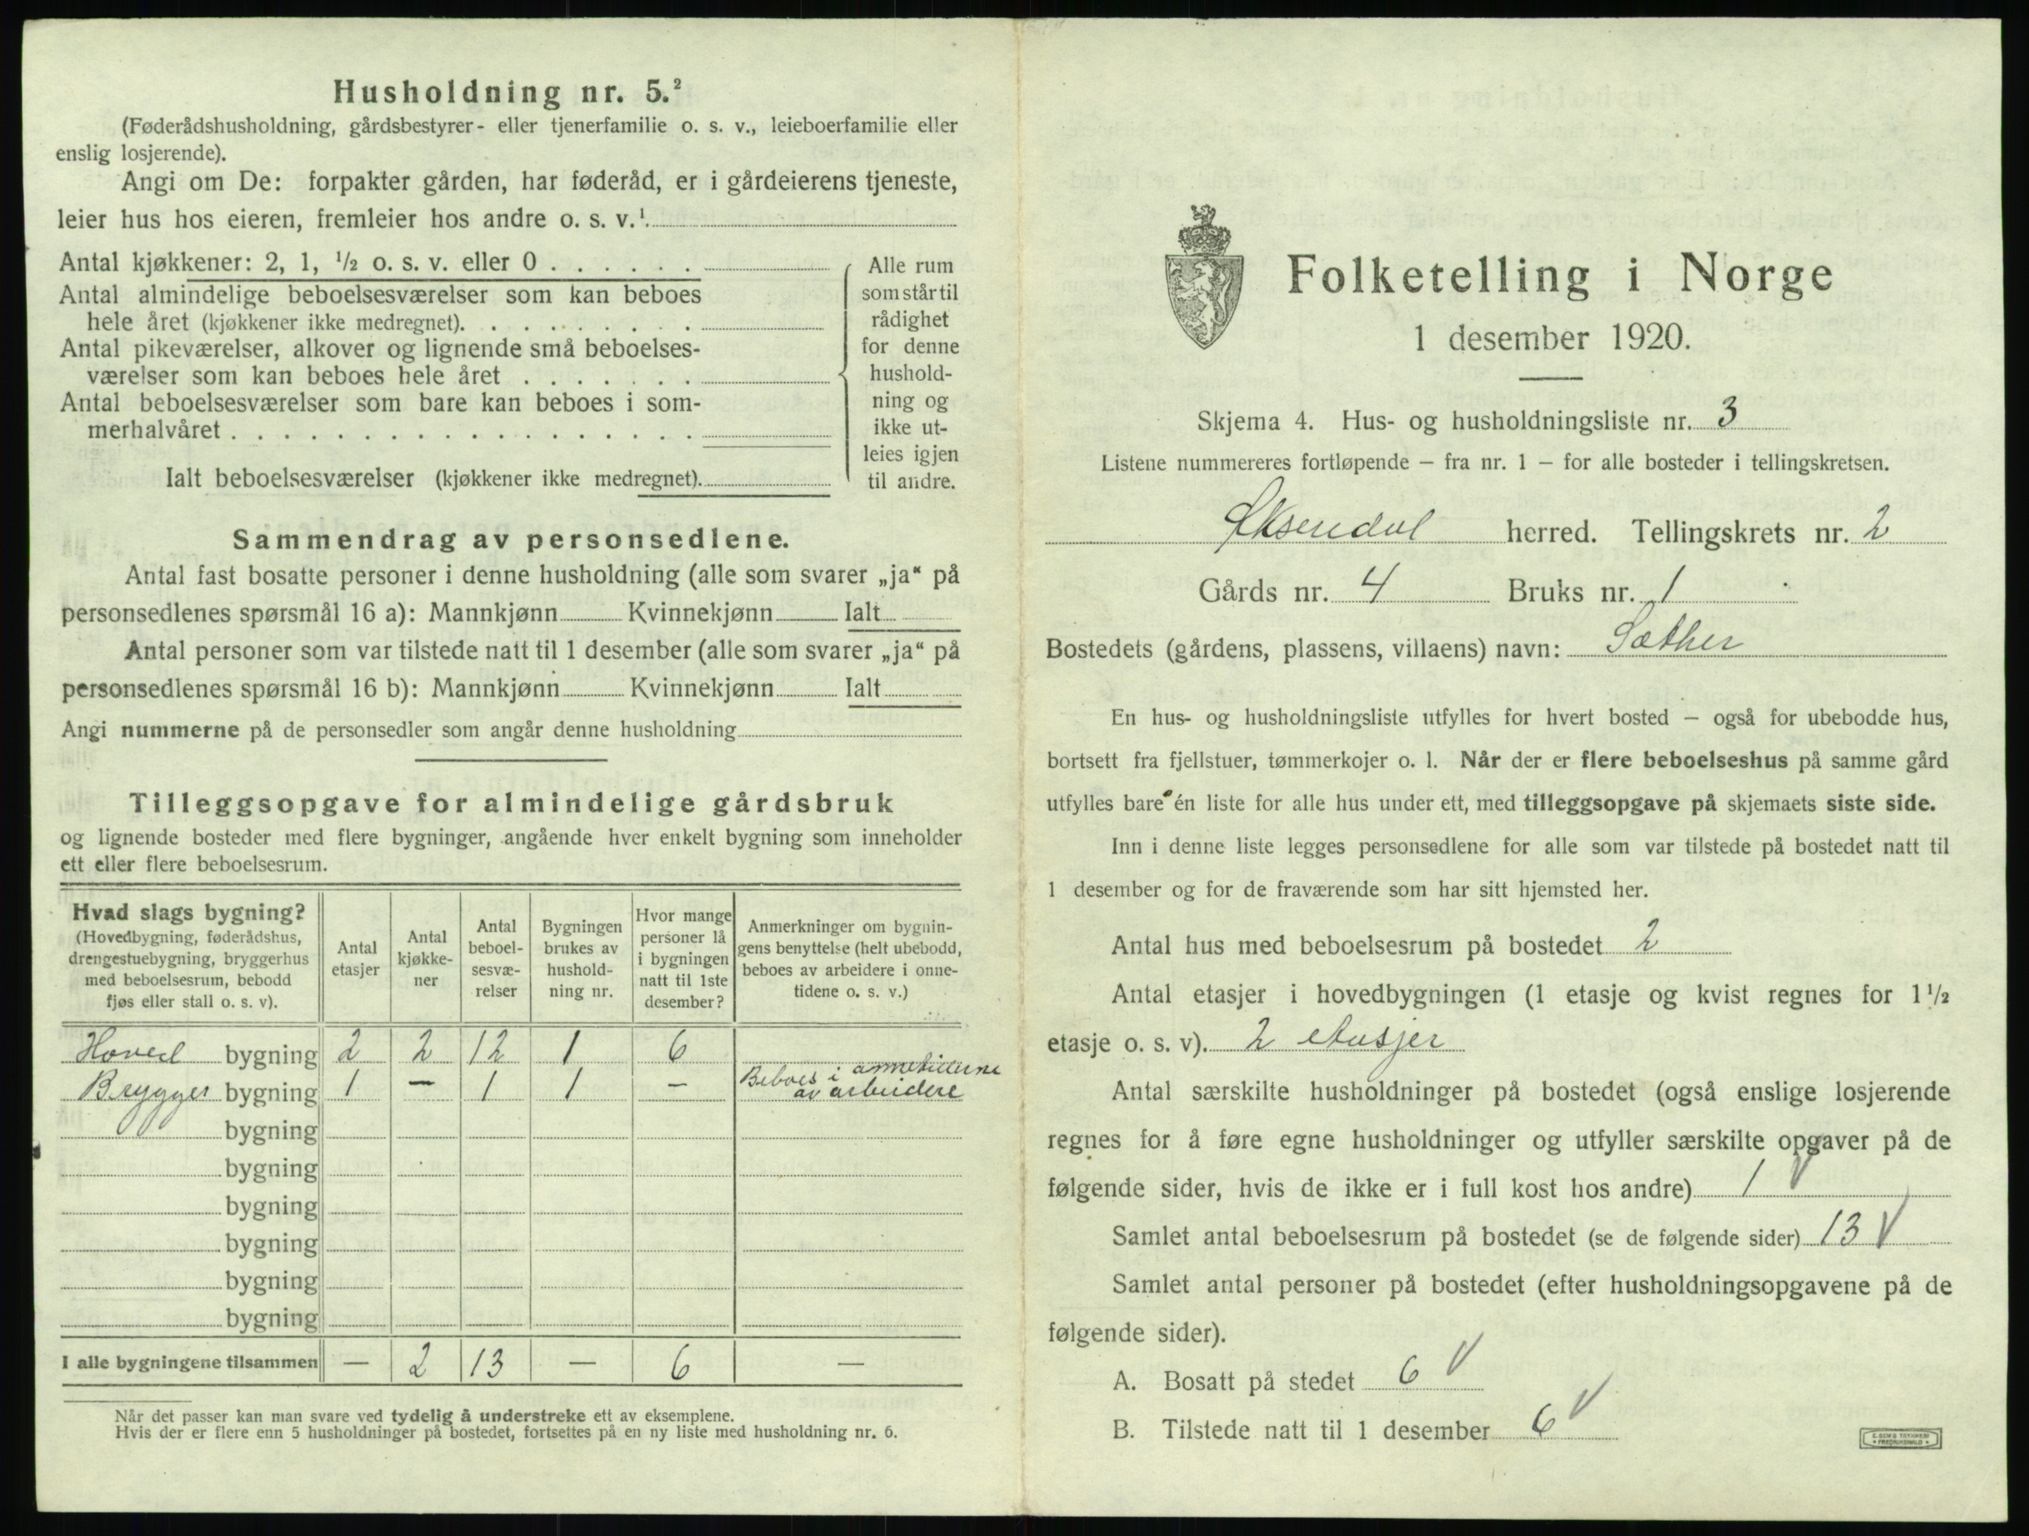 Husholdning nr. 5.²
(Føderådshusholdning, gårdsbestyrer- eller tjenerfamilie o. s. v., leieboerfamilie eller
enslig losjerende).
Angi om De: forpakter gården, har føderåd, er i gårdeierens tjeneste,
leier hus hos eieren, fremleier hos andre o. s. v.¹
Antal kjøkkener: 2, 1, ½ o. s. v. eller 0 . . . . . .
Antal almindelige beboelsesværelser som kan beboes
hele året (kjøkkener ikke medregnet). . . . . . . . .
Antal pikeværelser, alkover og lignende små beboelses-
værelser som kan beboes hele året . . . . . . .
Antal beboelsesværelser som bare kan beboes i som-
merhalvåret . . . . . . . . . . . . . . . . . .
Ialt beboelsesværelser (kjøkkener ikke medregnet).
Alle rum
som står til
rådighet
for denne
hushold-
ning og
ikke ut-
leies igjen
til andre.
Sammendrag av personsedlene.
Antal fast bosatte personer i denne husholdning (alle som svarer „ja“ på
personsedlenes spørsmål 16 a): Mannkjønn Kvinnekjønn Ialt
Antal personer som var tilstede natt til 1 desember (alle som svarer „ja“ på
personsedlenes spørsmål 16 b): Mannkjønn Kvinnekjønn Ialt
Angi nummerne på de personsedler som angår denne husholdning
Tilleggsopgave for almindelige gårdsbruk
og lignende bosteder med flere bygninger, angående hver enkelt bygning som inneholder
ett eller flere beboelsesrum.
Hvad slags bygning?
(Hovedbygning, føderådshus,
drengestuebygning, bryggerhus
med beboelsesrum, bebodd
fjøs eller stall o. s. v).
Antal
etasjer
Antal
kjøkke-
ner
Antal
beboel-
sesvæ-
relser
Bygningen
brukes av
hushold-
ning nr.
Hvor mange
personer lå
i bygningen
natt til 1ste
desember?
Anmerkninger om bygnin-
gens benyttelse (helt ubebodd,
beboes av arbeidere i onne-
tidene o. s. v.)
Hoved bygning 2 2 12 1 6
Brygger bygning 1 — 1 1 — Beboes i annetiderne
av arbeidere
bygning
bygning
bygning
bygning
bygning
bygning
I alle bygningene tilsammen — 2 13 — 6 —
Når det passer kan man svare ved tydelig å understreke ett av eksemplene.
Hvis der er flere enn 5 husholdninger på bostedet, fortsettes på en ny liste med husholdning nr. 6.
Folketelling i Norge
1 desember 1920.
Skjema 4. Hus- og husholdningsliste nr. 3
Listene nummereres fortløpende – fra nr. 1 – for alle bosteder i tellingskretsen.
Øksendal herred. Tellingskrets nr. 2
Gårds nr. 4 Bruks nr. 1
Bostedets (gårdens, plassens, villaens) navn: Sæther
En hus- og husholdningsliste utfylles for hvert bosted – også for ubebodde hus,
bortsett fra fjellstuer, tømmerkojer o. l. Når der er flere beboelseshus på samme gård
utfylles bare én liste for alle hus under ett, med tilleggsopgave på skjemaets siste side.
Inn i denne liste legges personsedlene for alle som var tilstede på bostedet natt til
1 desember og for de fraværende som har sitt hjemsted her.
Antal hus med beboelsesrum på bostedet 2
Antal etasjer i hovedbygningen (1 etasje og kvist regnes for 1½
etasje o. s. v). 2 etasjer
Antal særskilte husholdninger på bostedet (også enslige losjerende
regnes for å føre egne husholdninger og utfyller særskilte opgaver på de
følgende sider, hvis de ikke er i full kost hos andre) 1 V
Samlet antal beboelsesrum på bostedet (se de følgende sider) 13 V
Samlet antal personer på bostedet (efter husholdningsopgavene på de
følgende sider).
A. Bosatt på stedet 6 V
B. Tilstede natt til 1 desember 6 V